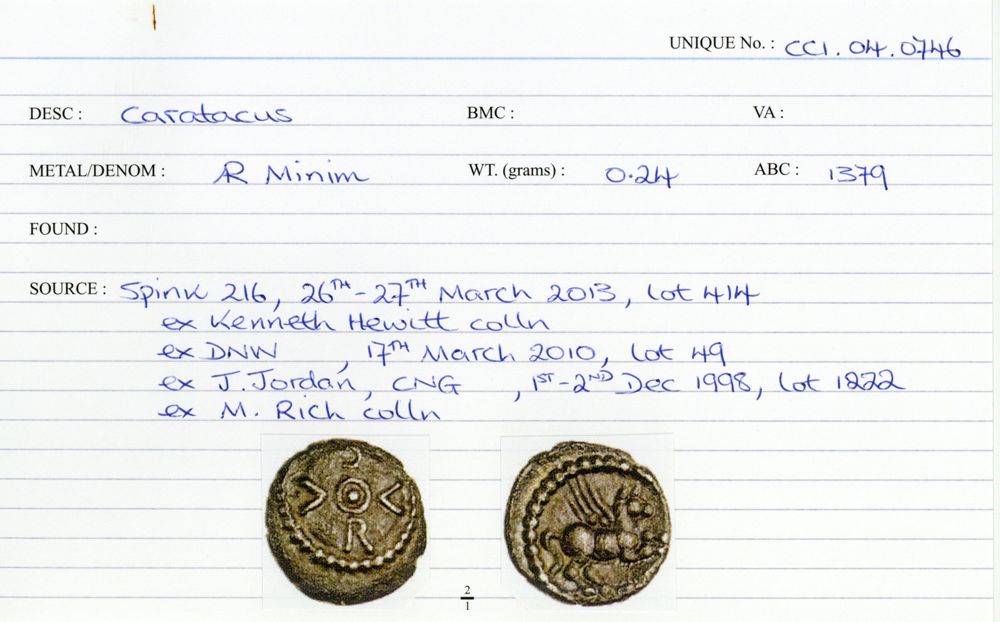 UNIQUE No. : CCI. 04. 0746
DESC : Caratacus BMC : VA :
METAL/DENOM : AR Minim WT. (grams) : 0.24 ABC : 1379
FOUND :
SOURCE : Spink 216, 26TH-27TH March 2013, lot 414
ex Kenneth Hewitt colln
ex DNW , 17TH March 2010, lot 49
ex J. Jordan, CNG , 1ST-2ND Dec 1998, lot 1222
ex M. Rich colln
C
R
2
1